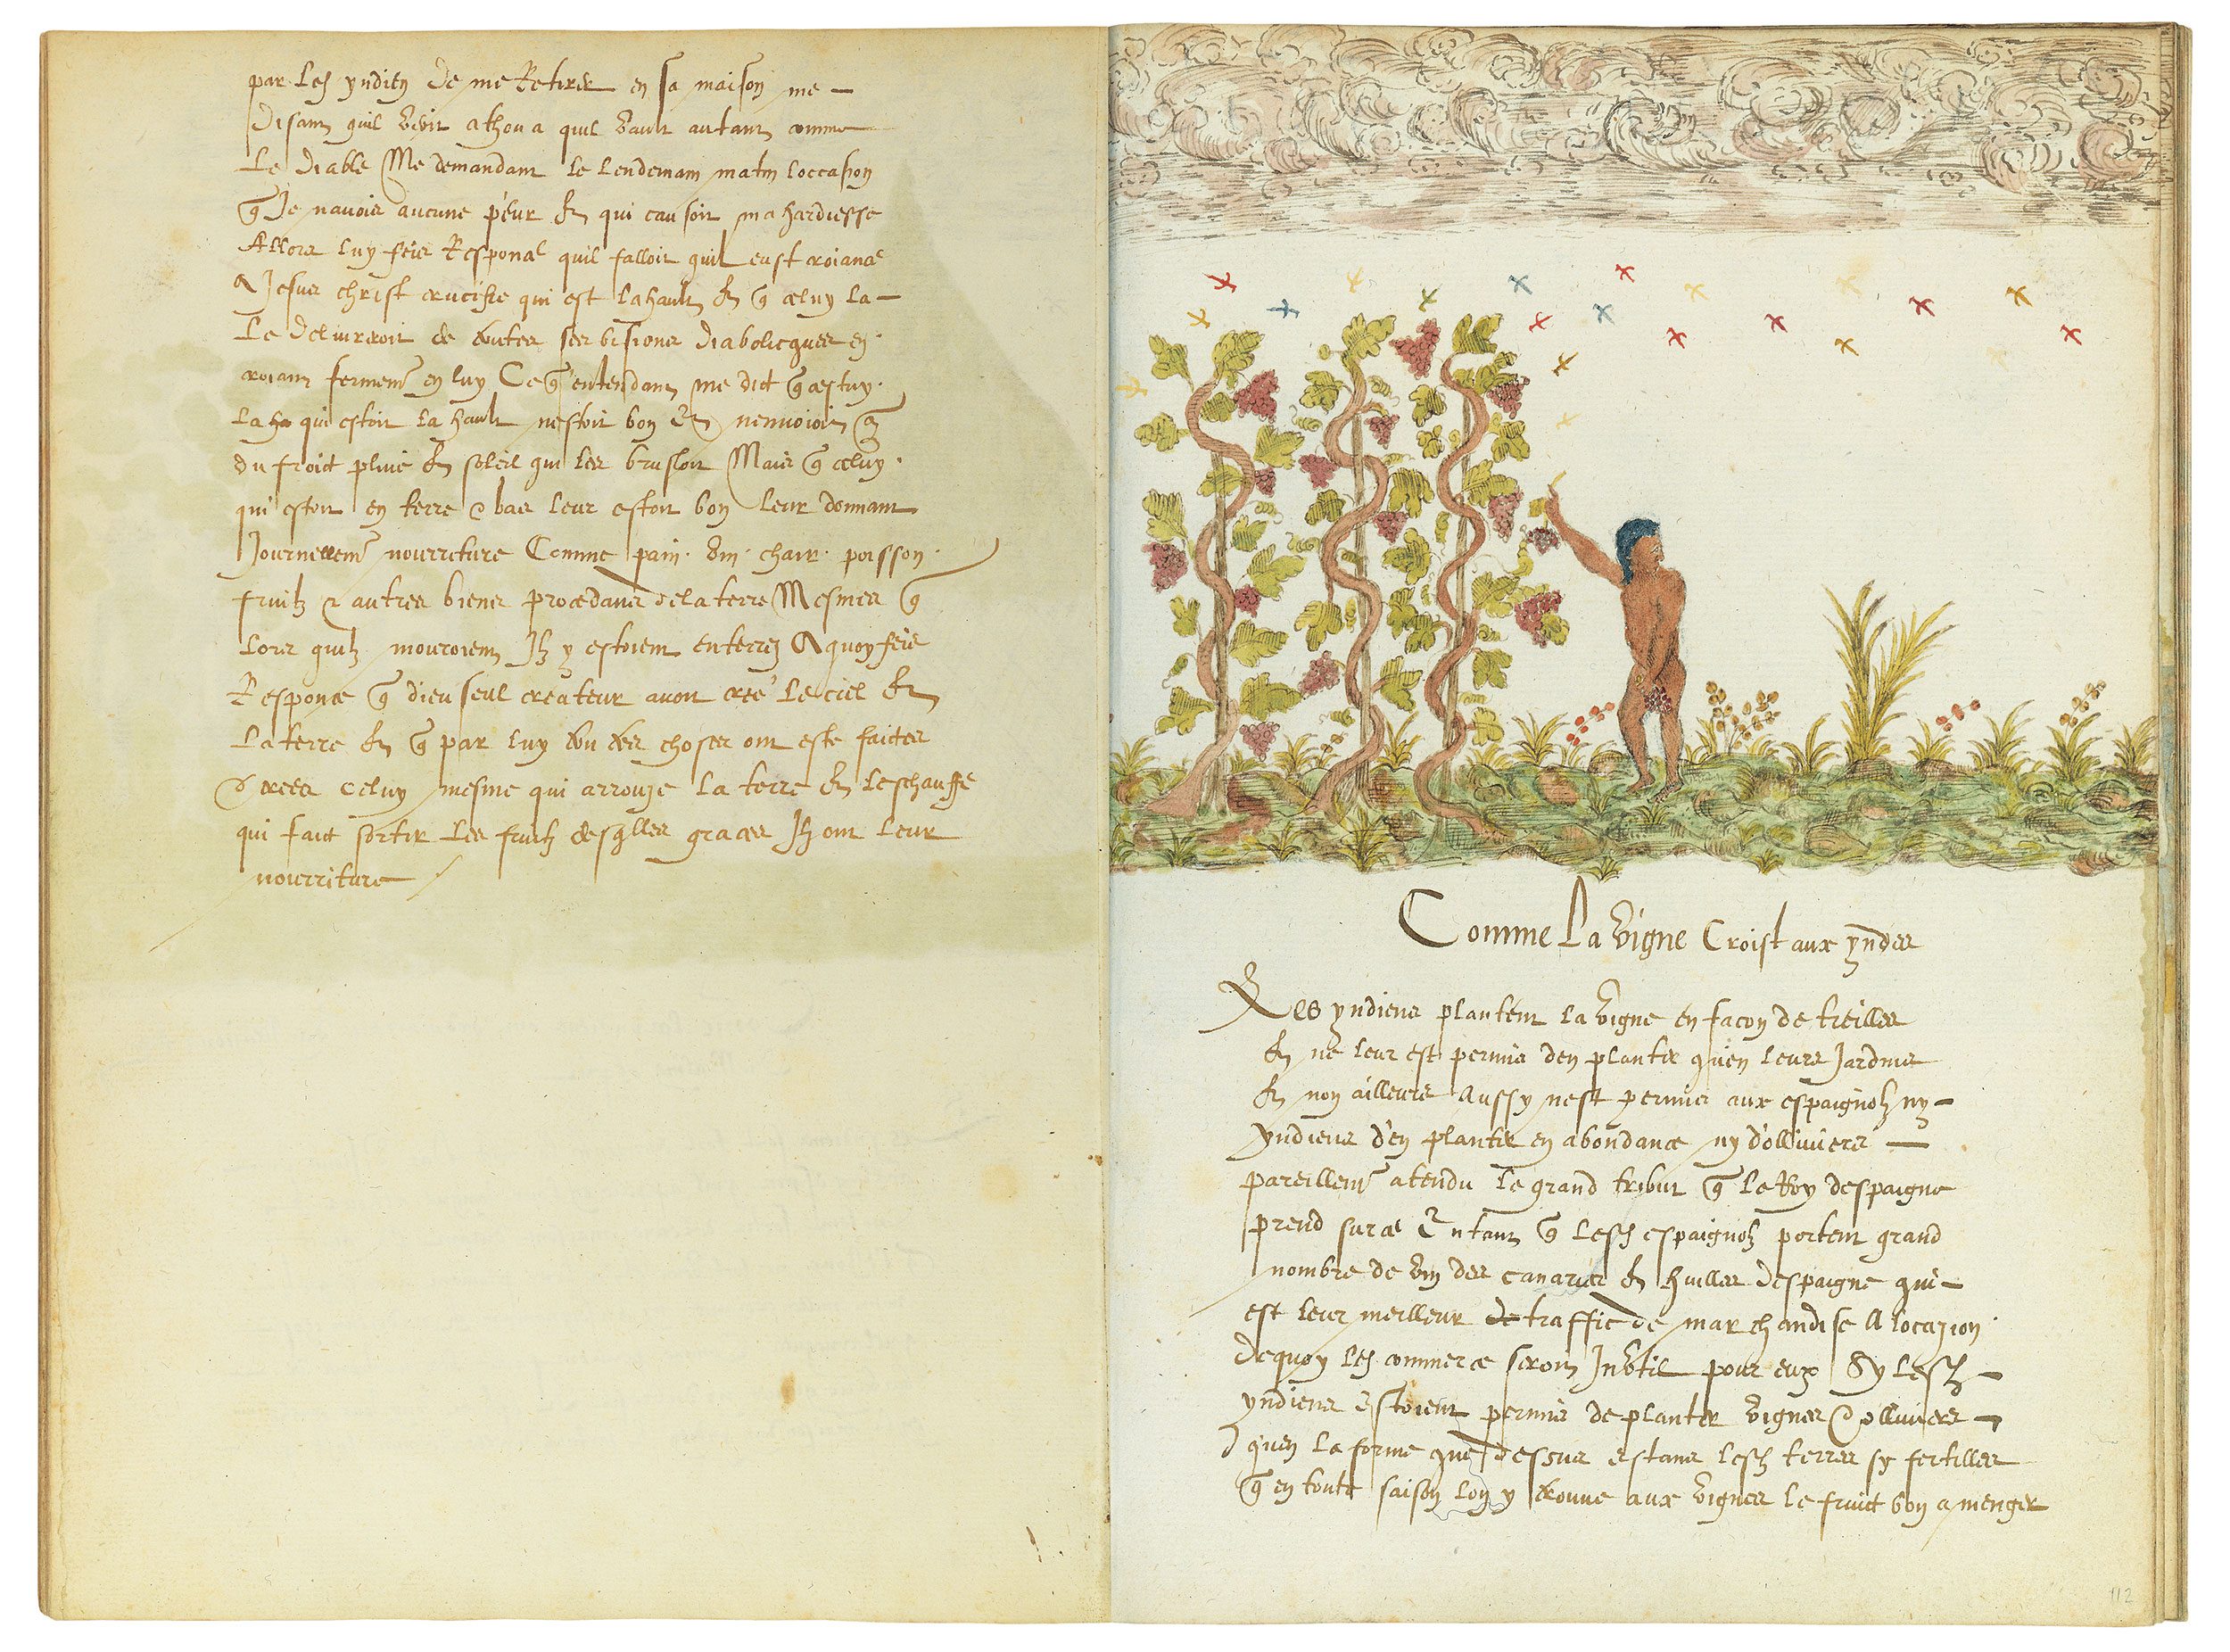 par lesd yndien de me Retirer en sa maison me
disant quil veoit athoua quil vault autant comme
Le diable Me demandant le lendemain matin loccasion
q Je navois aucune peur & qui causoit ma hardiesse
Allors luy feis Responce quil falloit quil eust croiance
A Jesus christ crucifie qui est la hault & q celuy la
Le delivreroit de toutes ses visions diabolicques en
croiant fermemt en luy Ce q entendant me dict q cestuy
la qui estoit la hault nestoit bon Et nenvoioit q
du froict pluie & soleil qui les brusloit Mais q celuy
qui estoit en terre & bas leur estoit bon leur donnant
Journellemt nourriture Comme pain vin chair poisson
fruitz & autres biens procedans de la terre Mesmes q
lors quilz mouroient Ilz y estoient enterrez A quoy feis
Responce q dieu seul createur avoit creé Le ciel &
La terre & q par luy toutes choses ont este faictes
& crees celuy mesme qui arrouze la terre & leschauffe
qui faict sortir les fruitz desquelles graces Ilz ont leur
nourriture
Comme La vigne Croist aux yndes
Les yndiens plantent la vigne en facon de treilles
& ne leur est permis den planter quen leurs Jardins
& non ailleurs Aussy nest permis aux espaignolz ny
yndiens d'en planter en abondance ny d'olliviers
pareillemt atendu le grand tribut q Le Roy despaigne
prend sur ce Entant q lesd espaignolz portent grand
nombre de vin des canaries & huilles despaigne qui
est leur meilleur de traffic de marchandise A locazion
dequoy led commerce seroit Inutil pour eux Sy lesd
yndiens estoient permis de planter vignes & olliviers
quen la forme que dessus estans lesd terres sy fertilles
q en toute saison lon y trouve aux vignes le fruict bon a menger
112